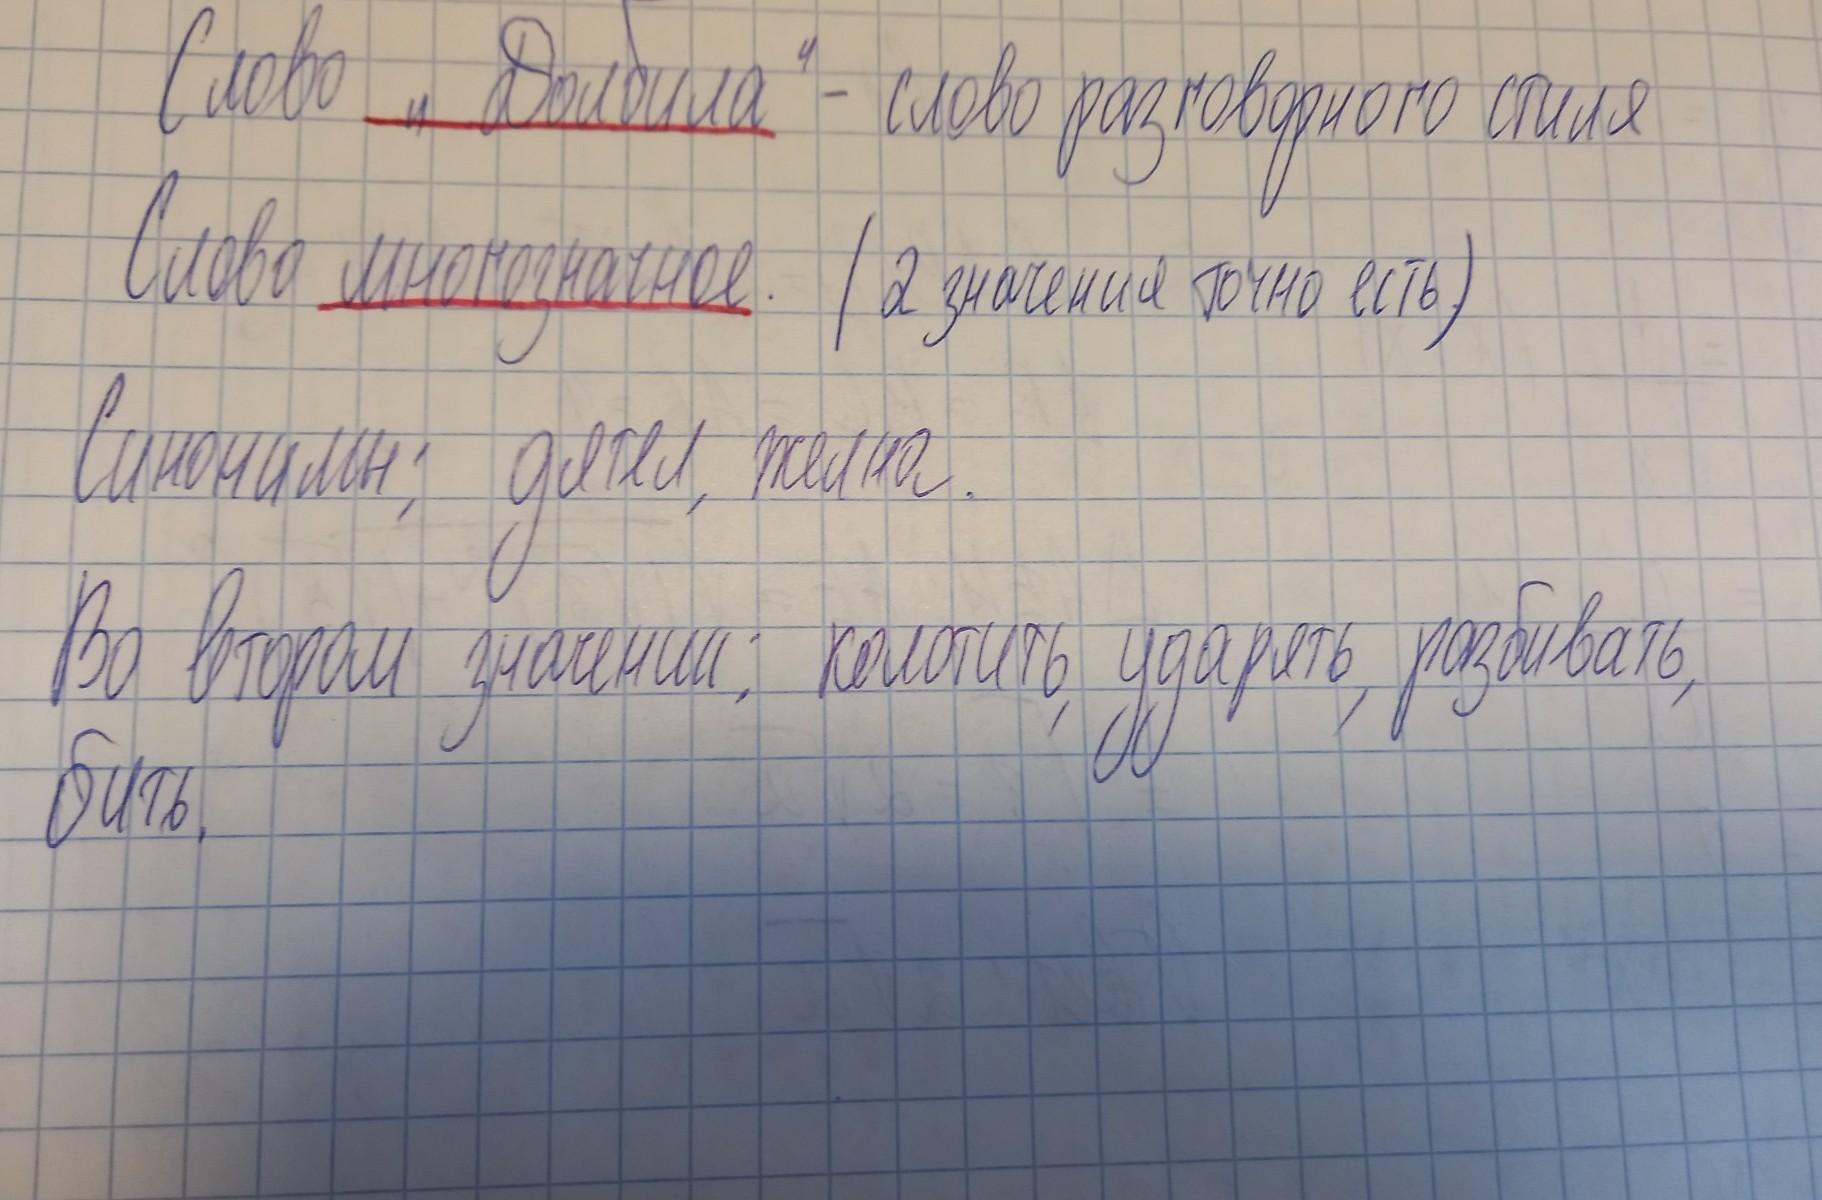 Слово „Долбила“ - слово разговорного стиля
Слово многозначное. (2 значения точно есть)
Синонимы; дятел, желна.
Во втором значении; колотить, ударять, разбивать,
бить.